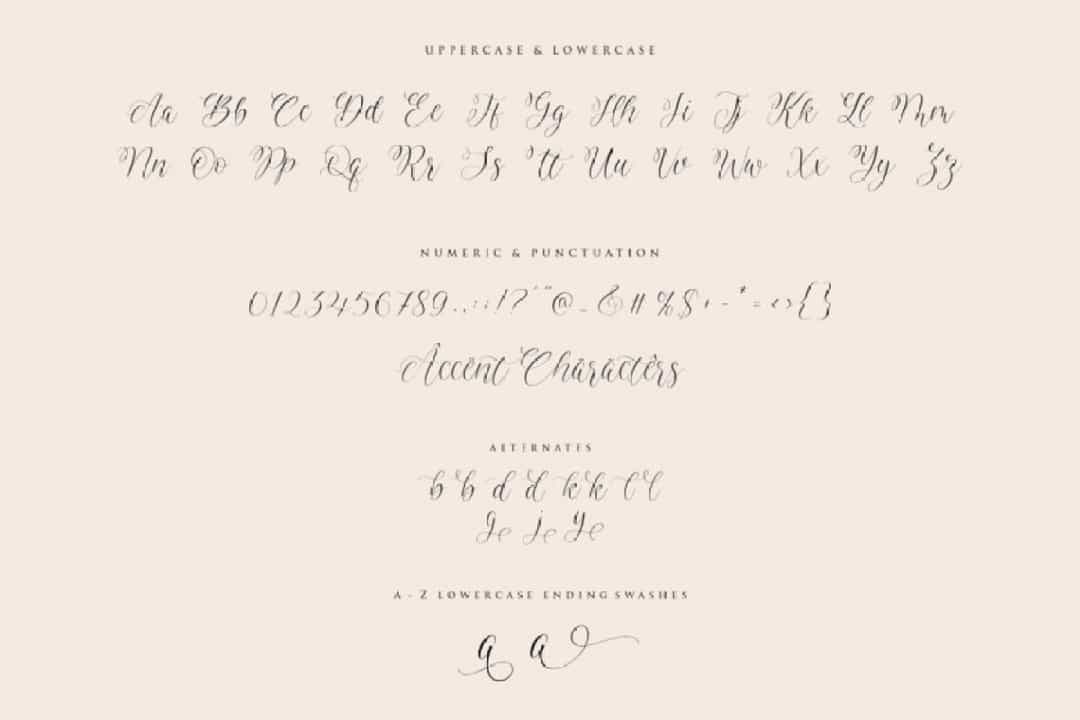 UPPERCASE & LOWERCASE
Aa Bb Cc Dd Ee Ff Gg Hh Ii Jj Kk Ll Mm
Nn Oo Pp Qq Rr Ss Tt Uu Vv Ww Xx Yy Zz
NUMERIC & PUNCTUATION
0123456789.,:;!?'"@_&#%$+-*=<>{}
Accent Characters
ALTERNATES
b b d d k k l l
g j y
A - Z LOWERCASE ENDING SWASHES
a a